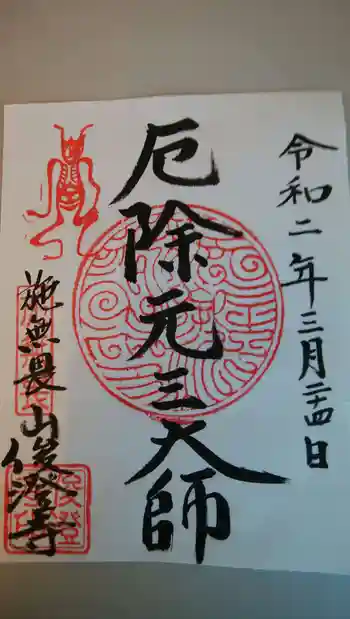 令和二年三月二十四日
厄除元三大師
施無畏山
俊澄寺